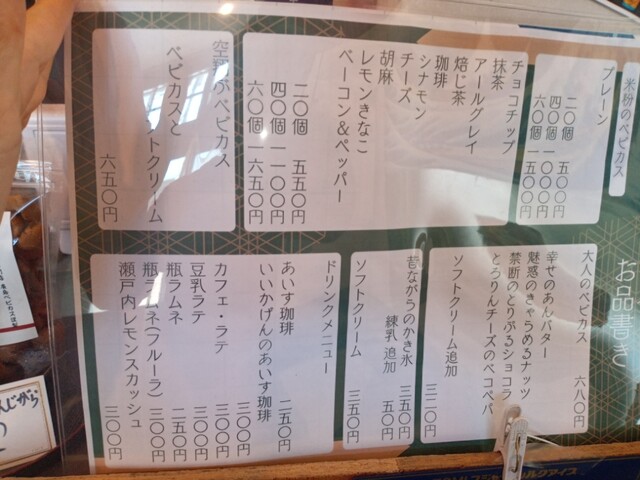 お品書き
米粉のベビカス
プレーン
二〇個 五五〇円
四〇個 一〇〇〇円
六〇個 一五〇〇円
チョコチップ
抹茶
アールグレイ
焙じ茶
珈琲
シナモン
チーズ
胡麻
レモンきなこ
ベーコン&ペッパー
二〇個 五五〇円
四〇個 一一〇〇円
六〇個 一六五〇円
ベビカス
ベビカスと
トクリーム
六五〇円
大人のベビカス 六八〇円
幸せのあんバター
魅惑のきゃらめるナッツ
禁断のとりぷるショコラ
とろりんチーズのペコペパ
ソフトクリーム追加 三二〇円
昔ながらのかき氷 三五〇円
練乳 追加 五〇円
ソフトクリーム 三五〇円
ドリンクメニュー
あいす珈琲 二五〇円
いいかげんのあいす珈琲 三〇〇円
カフェ・ラテ 三〇〇円
豆乳ラテ 三〇〇円
瓶ラムネ 二五〇円
瓶ラムネ(フルーラ) 三〇〇円
瀬戸内レモンスカッシュ 三〇〇円